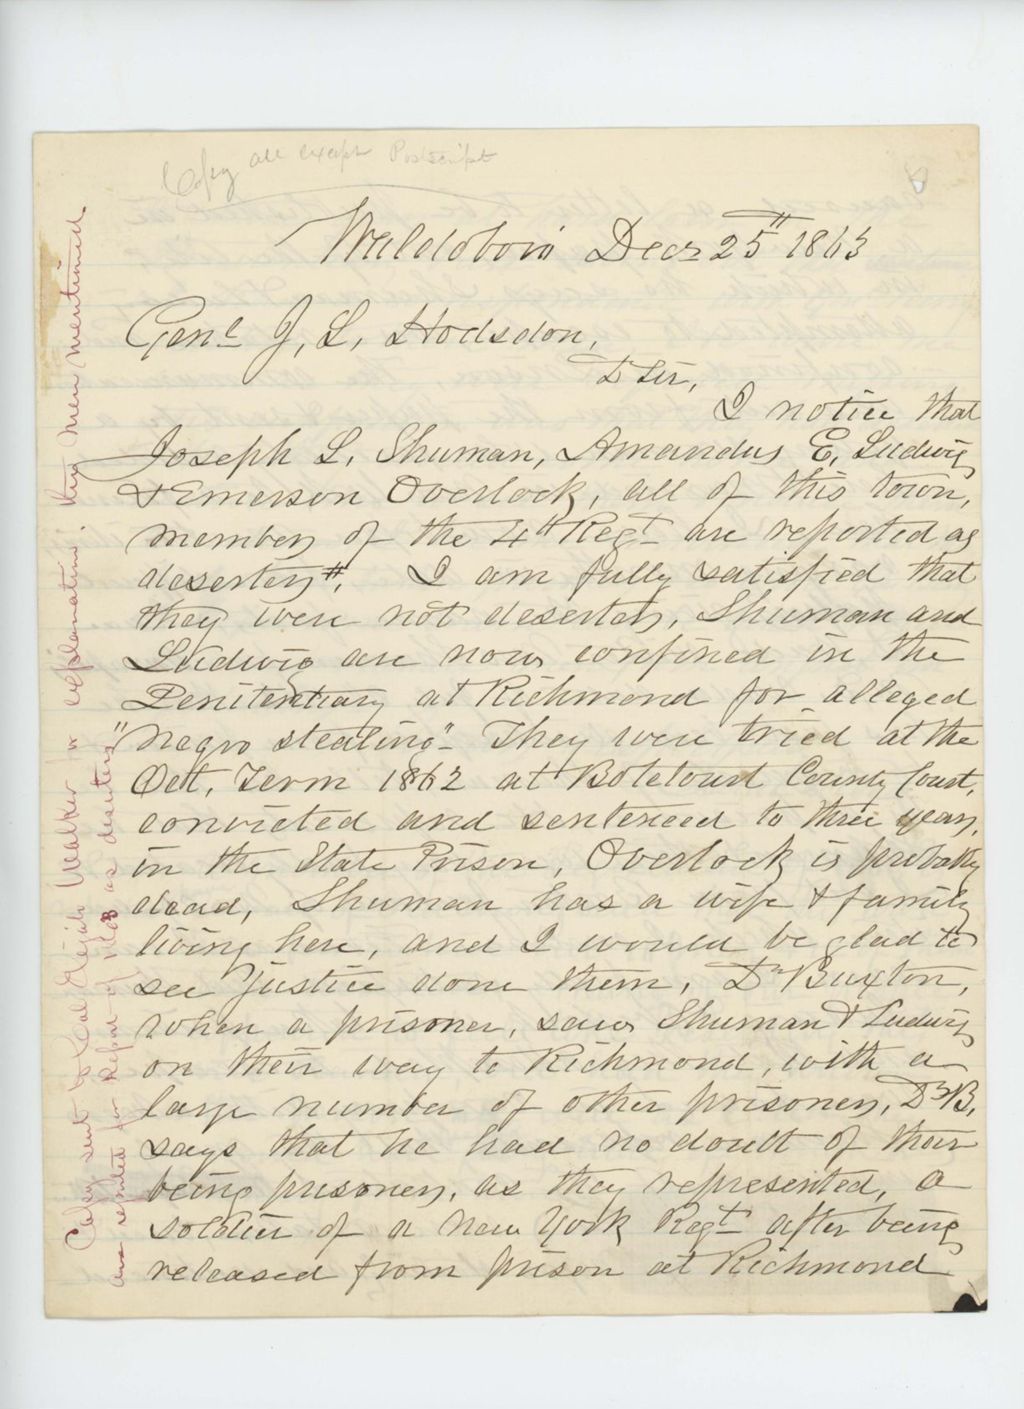 Copy all except Postscript
Waldoboro Decr 25th 1863
Genl J, L, Hodsdon,
Dr Sir,
I notice that
Joseph L, Shuman, Amandus E, Ludwig
& Emerson Overlock, all of this town,
members of the 4th Regt are reported as
deserters#. I am fully satisfied that
they were not deserters, Shuman and
Ludwig are now confined in the
Penitentiary at Richmond for alleged
"Negro stealing" - They were tried at the
Oct, Term 1862 at Botetourt County Court,
convicted and sentenced to three years,
in the State Prison, Overlock is probably
dead, Shuman has a wife & family
living here, and I would be glad to
see justice done them, Dr Buxton,
when a prisoner, saw Shuman & Ludwig
on their way to Richmond, with a
large number of other prisoners, Dr B,
says that he had no doubt of their
being prisoners, as they represented, a
soldier of a New York Regt after being
released from prison at Richmond
Copy sent to Col Elijah Walker in explanation. they men mentioned.
are reported for Report of 1863 as deserters